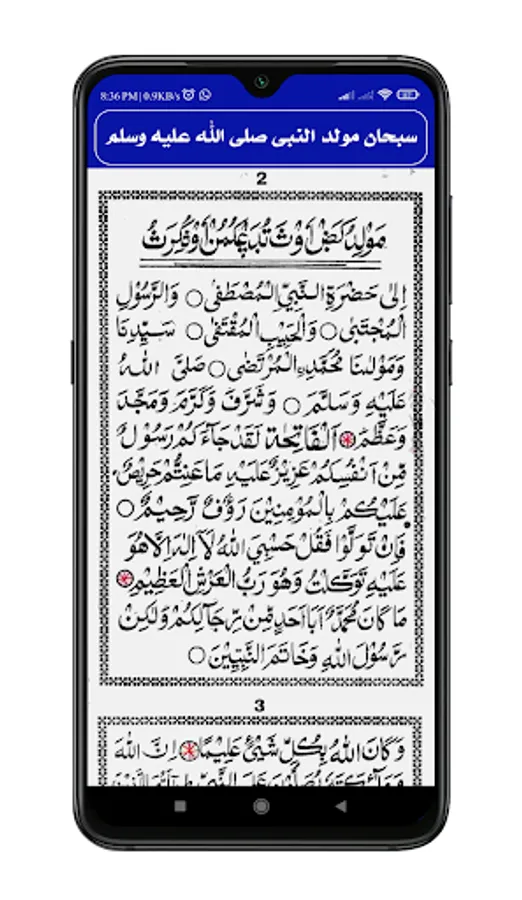 8:36 PM | 0.9KB/s
سبحان مولد النبى صلى الله عليه وسلم
2
اِلٰى حَضْرَةِ النَّبِيِّ الْمُصْطَفٰى ○ وَالرَّسُوْلِ
الْمُجْتَبٰى ○ وَالْحَبِيْبِ الْمُقْتَفٰى ○ سَيِّدِنَا
وَمَوْلٰىنَا مُحَمَّدِنِ الْمُرْتَضٰى ○ صَلَّى اللهُ
عَلَيْهِ وَسَلَّمَ ○ وَشَرَّفَ وَكَرَّمَ وَمَجَّدَ
وَعَظَّمَ اَلْفَاتِحَة لَقَدْ جَاءَكُمْ رَسُوْلٌ
مِّنْ اَنْفُسِكُمْ عَزِيْزٌ عَلَيْهِ مَا عَنِتُّمْ حَرِيْصٌ
عَلَيْكُمْ بِالْمُؤْمِنِيْنَ رَؤُفٌ رَّحِيْمٌ ○
فَاِنْ تَوَلَّوْا فَقُلْ حَسْبِيَ اللهُ لَآ اِلٰهَ اِلَّا هُوَ
عَلَيْهِ تَوَكَّلْتُ وَهُوَ رَبُّ الْعَرْشِ الْعَظِيْمِ
مَا كَانَ مُحَمَّدٌ اَبَا اَحَدٍ مِّنْ رِّجَالِكُمْ وَلٰكِنْ
رَّسُوْلَ اللهِ وَخَاتَمَ النَّبِيِّيْنَ ○
3
وَكَانَ اللهُ بِكُلِّ شَيْئٍ عَلِيْمًا اِنَّ اللهَ